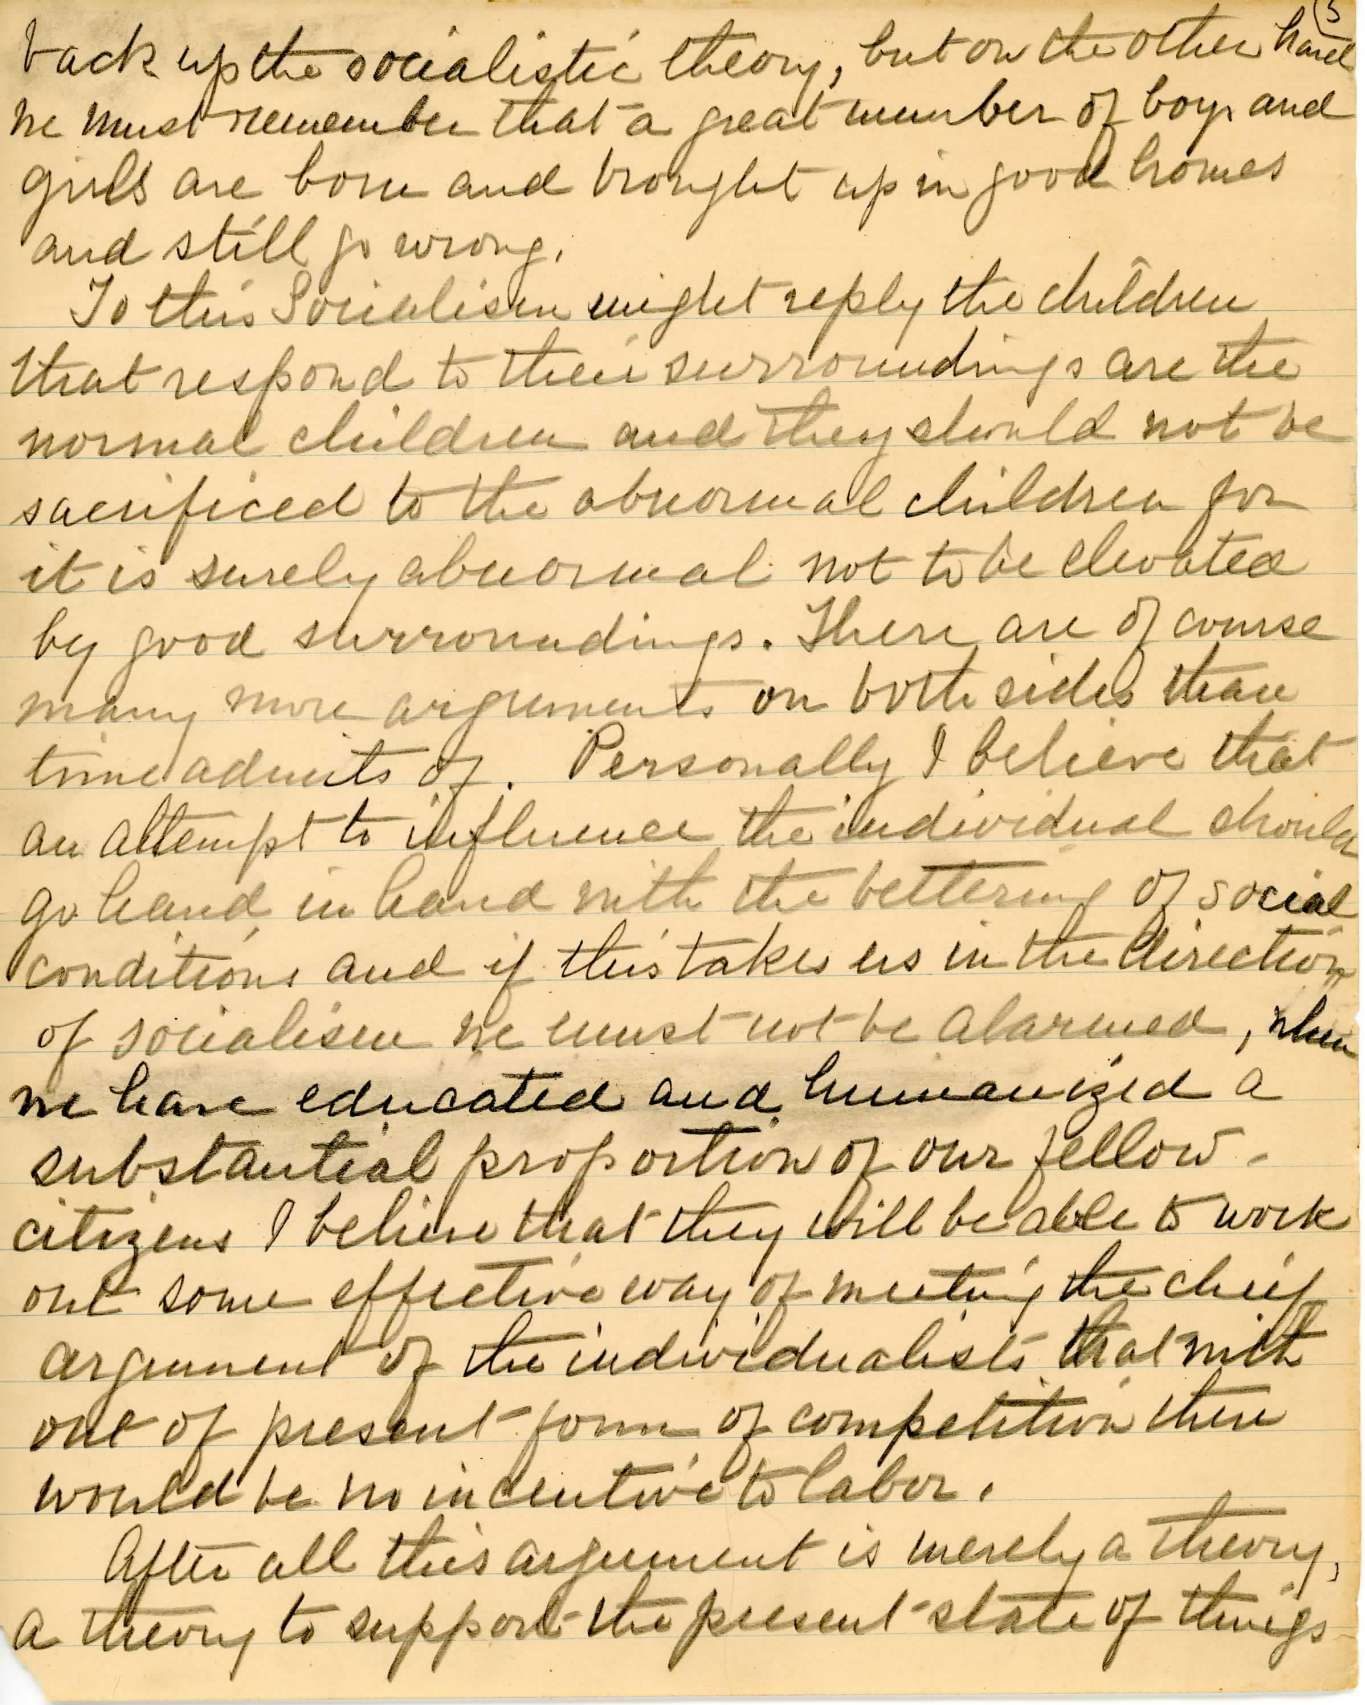 (5
back up the socialistic theory, but on the other hand
we must remember that a great number of boys and
girls are born and brought up in good homes
and still go wrong.
To this Socialism might reply the children
that respond to their surroundings are the
normal children and they should not be
sacrificed to the abnormal children for
it is surely abnormal not to be elevated
by good surroundings. There are of course
many more arguments on both sides than
time admits of. Personally I believe that
an attempt to influence the individual should
go hand in hand with the bettering of social
conditions and if this takes us in the direction
of socialism we must not be alarmed, when
we have educated and humanized a
substantial proportion of our fellow-
citizens I believe that they will be able to work
out some effective way of meeting the chief
argument of the individualists that with
out of present form of competition there
would be no incentive to labor.
After all this argument is merely a theory,
a theory to support the present state of things